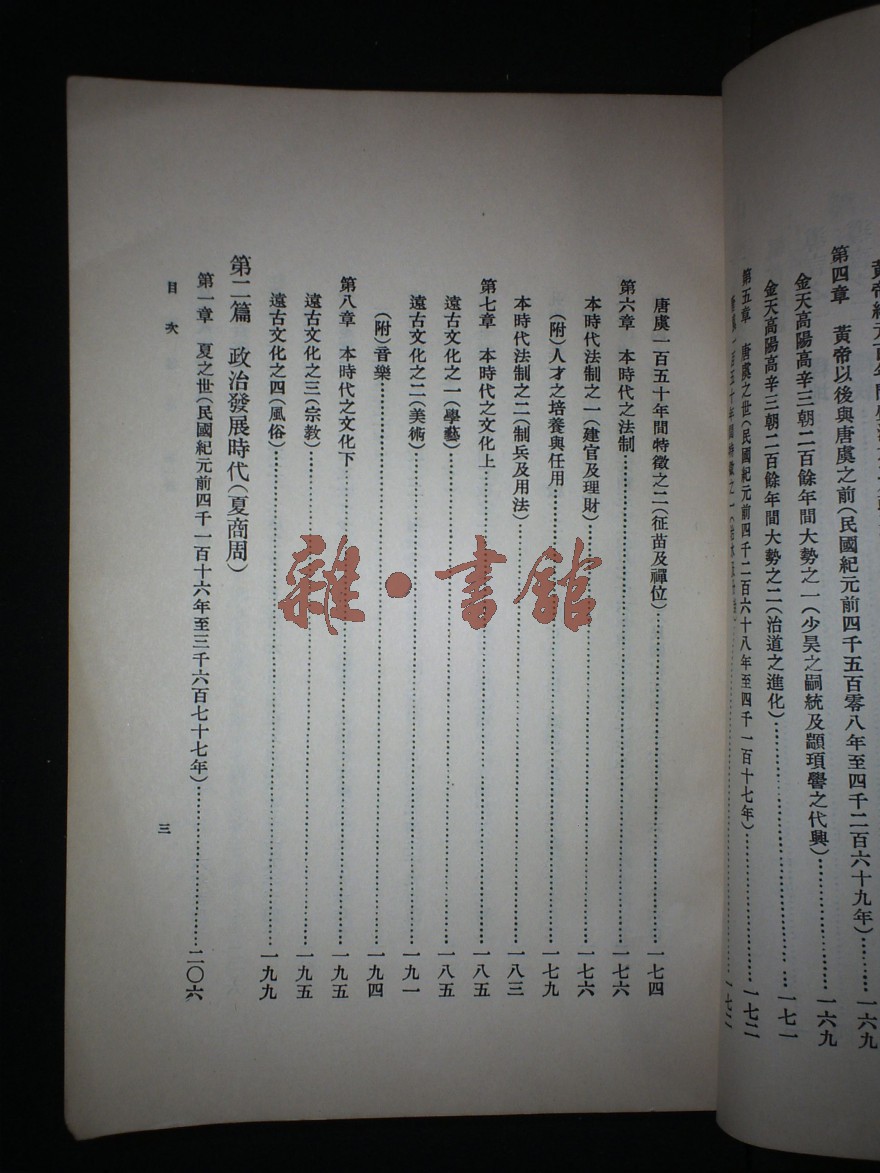 第四章　黃帝以後與唐虞之前(民國紀元前四千五百零八年至四千二百六十九年)……一六九
金天高陽高辛三朝二百餘年間大勢之一(少昊之嗣統及顓頊嚳之代興)……一六九
金天高陽高辛三朝二百餘年間大勢之二(治道之進化)……一七一
第五章　唐虞之世(民國紀元前四千二百六十八年至四千一百十七年)……一七二
唐虞一百五十年間特徵之一……一七二
唐虞一百五十年間特徵之二(征苗及禪位)……一七四
第六章　本時代之法制……一七六
本時代法制之一(建官及理財)……一七六
(附)人才之培養與任用……一七九
本時代法制之二(制兵及用法)……一八三
第七章　本時代之文化上……一八五
遠古文化之一(學藝)……一八五
遠古文化之二(美術)……一九一
(附)音樂……一九四
第八章　本時代之文化下……一九五
遠古文化之三(宗教)……一九五
遠古文化之四(風俗)……一九九
第二篇　政治發展時代(夏商周)
第一章　夏之世(民國紀元前四千一百十六年至三千六百七十七年)……二〇六
目次　三
雜·書館